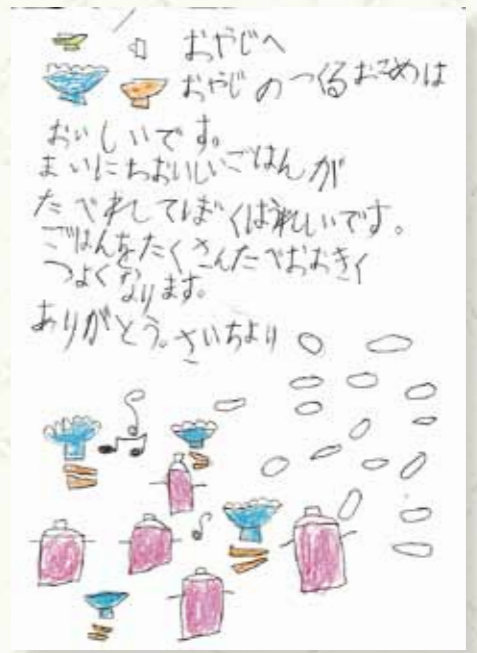 おやじへ
おやじのつくるおこめは
おいしいです。
まいにちおいしいごはんが
たべれてぼくはうれしいです。
ごはんをたくさんたべおおきく
つよくなります。
ありがとう。さいちより